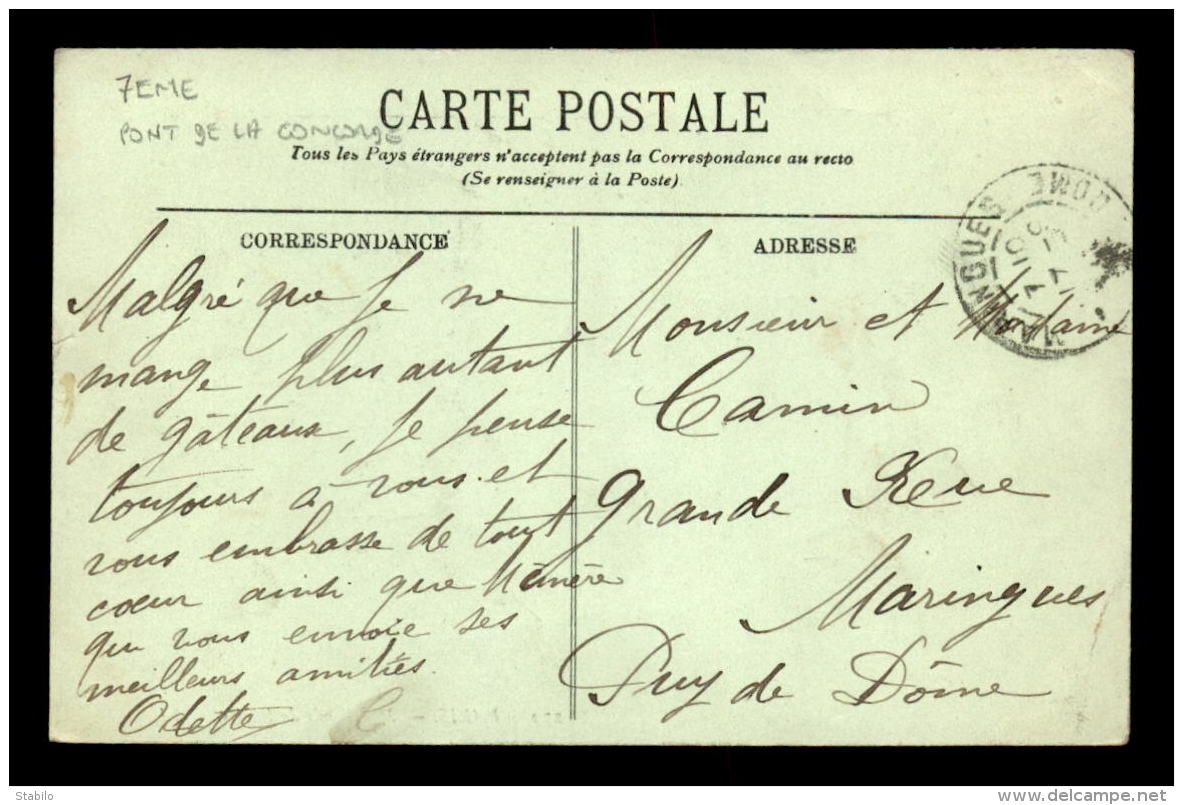 7EME
PONT DE LA CONCORDE
CARTE POSTALE
Tous les Pays étrangers n'acceptent pas la Correspondance au recto
(Se renseigner à la Poste)
CORRESPONDANCE
Malgré que je ne
mange plus autant
de gâteaux, je pense
toujours à vous et
vous embrasse de tout
cœur ainsi que Mémère
qui vous envoie ses
meilleurs amitiés.
Odette
ADRESSE
Monsieur et Madame
Camin
Grande Rue
Maringues
Puy de Dôme
MARINGUES DOME
Stabilo
delcampe.net